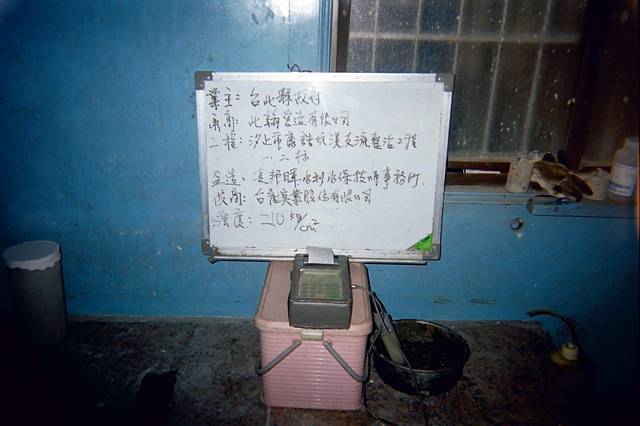 業主：台北縣政府
承商：北赫營造有限公司
工程：汐止市康誥坑溪支流整治工程
一、二標
監造：凌邦暉水利水保技師事務所
廠商：台產實業股份有限公司
強度：210 kg/cm²